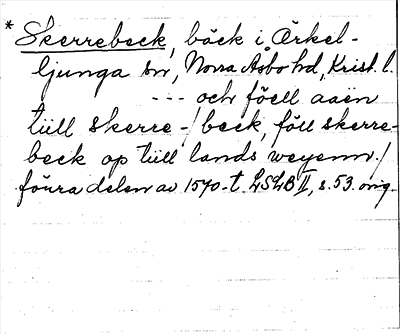 * Skerrebeck, bäck i Örkel-
ljunga sn, Norra Åsbo hd, Krist. l.
--- och föell aaen
tiill Skerre-/beck, föll skerre-
beck op tiill lands weyenn./
förra delen av 1570-t. LSLB II, s. 53. orig.